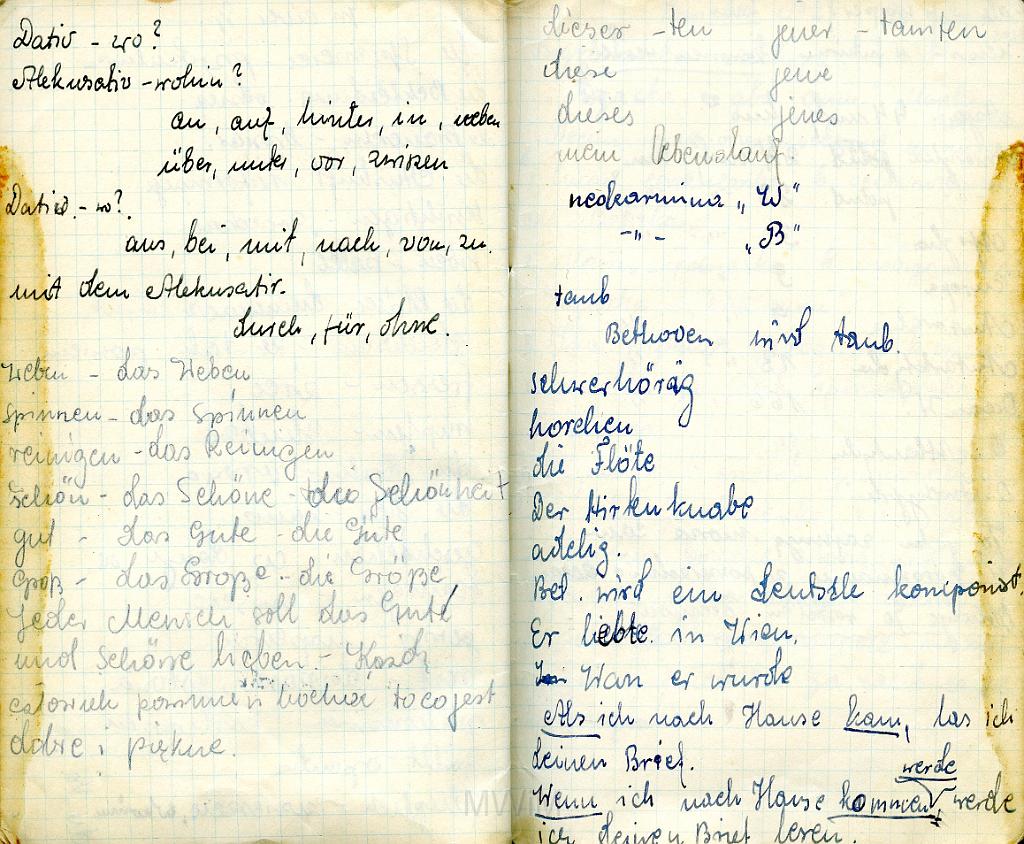 Dativ - wo?
Akkusativ - wohin?
an, auf, hinter, in, neben
über, unter, vor, zwiszen
Dativ. - wo?
aus, bei, mit, nach, von, zu.
mit dem Akkusativ.
durch, für, ohne.
Weben - das Weben
Spinnen - das Spinnen
reinigen - das Reinigen
schön - das Schöne - die Schönheit
gut - das Gute - die Güte
groß - das Große - die Größe
Jeder Mensch soll das Gute
und Schöne lieben. - Każdy
człowiek powinien kochać to co jest
dobre i piękne.
dieser - ten jener - tamten
diese jene
dieses jenes
mein Lebenslauf
"W"
-"- "B"
taub
Bethoven wird taub.
schwerhörig
horchen
die Flöte
Der Hirtenknabe
adelig.
Bet. wird ein deutscher komponist.
Er liebte in Wien.
Wan er wurde
Als ich nach Hause kam, las ich
deinen Brief.
werde
Wenn ich nach Hause kommen, werde
ich deinen Brief lesen.